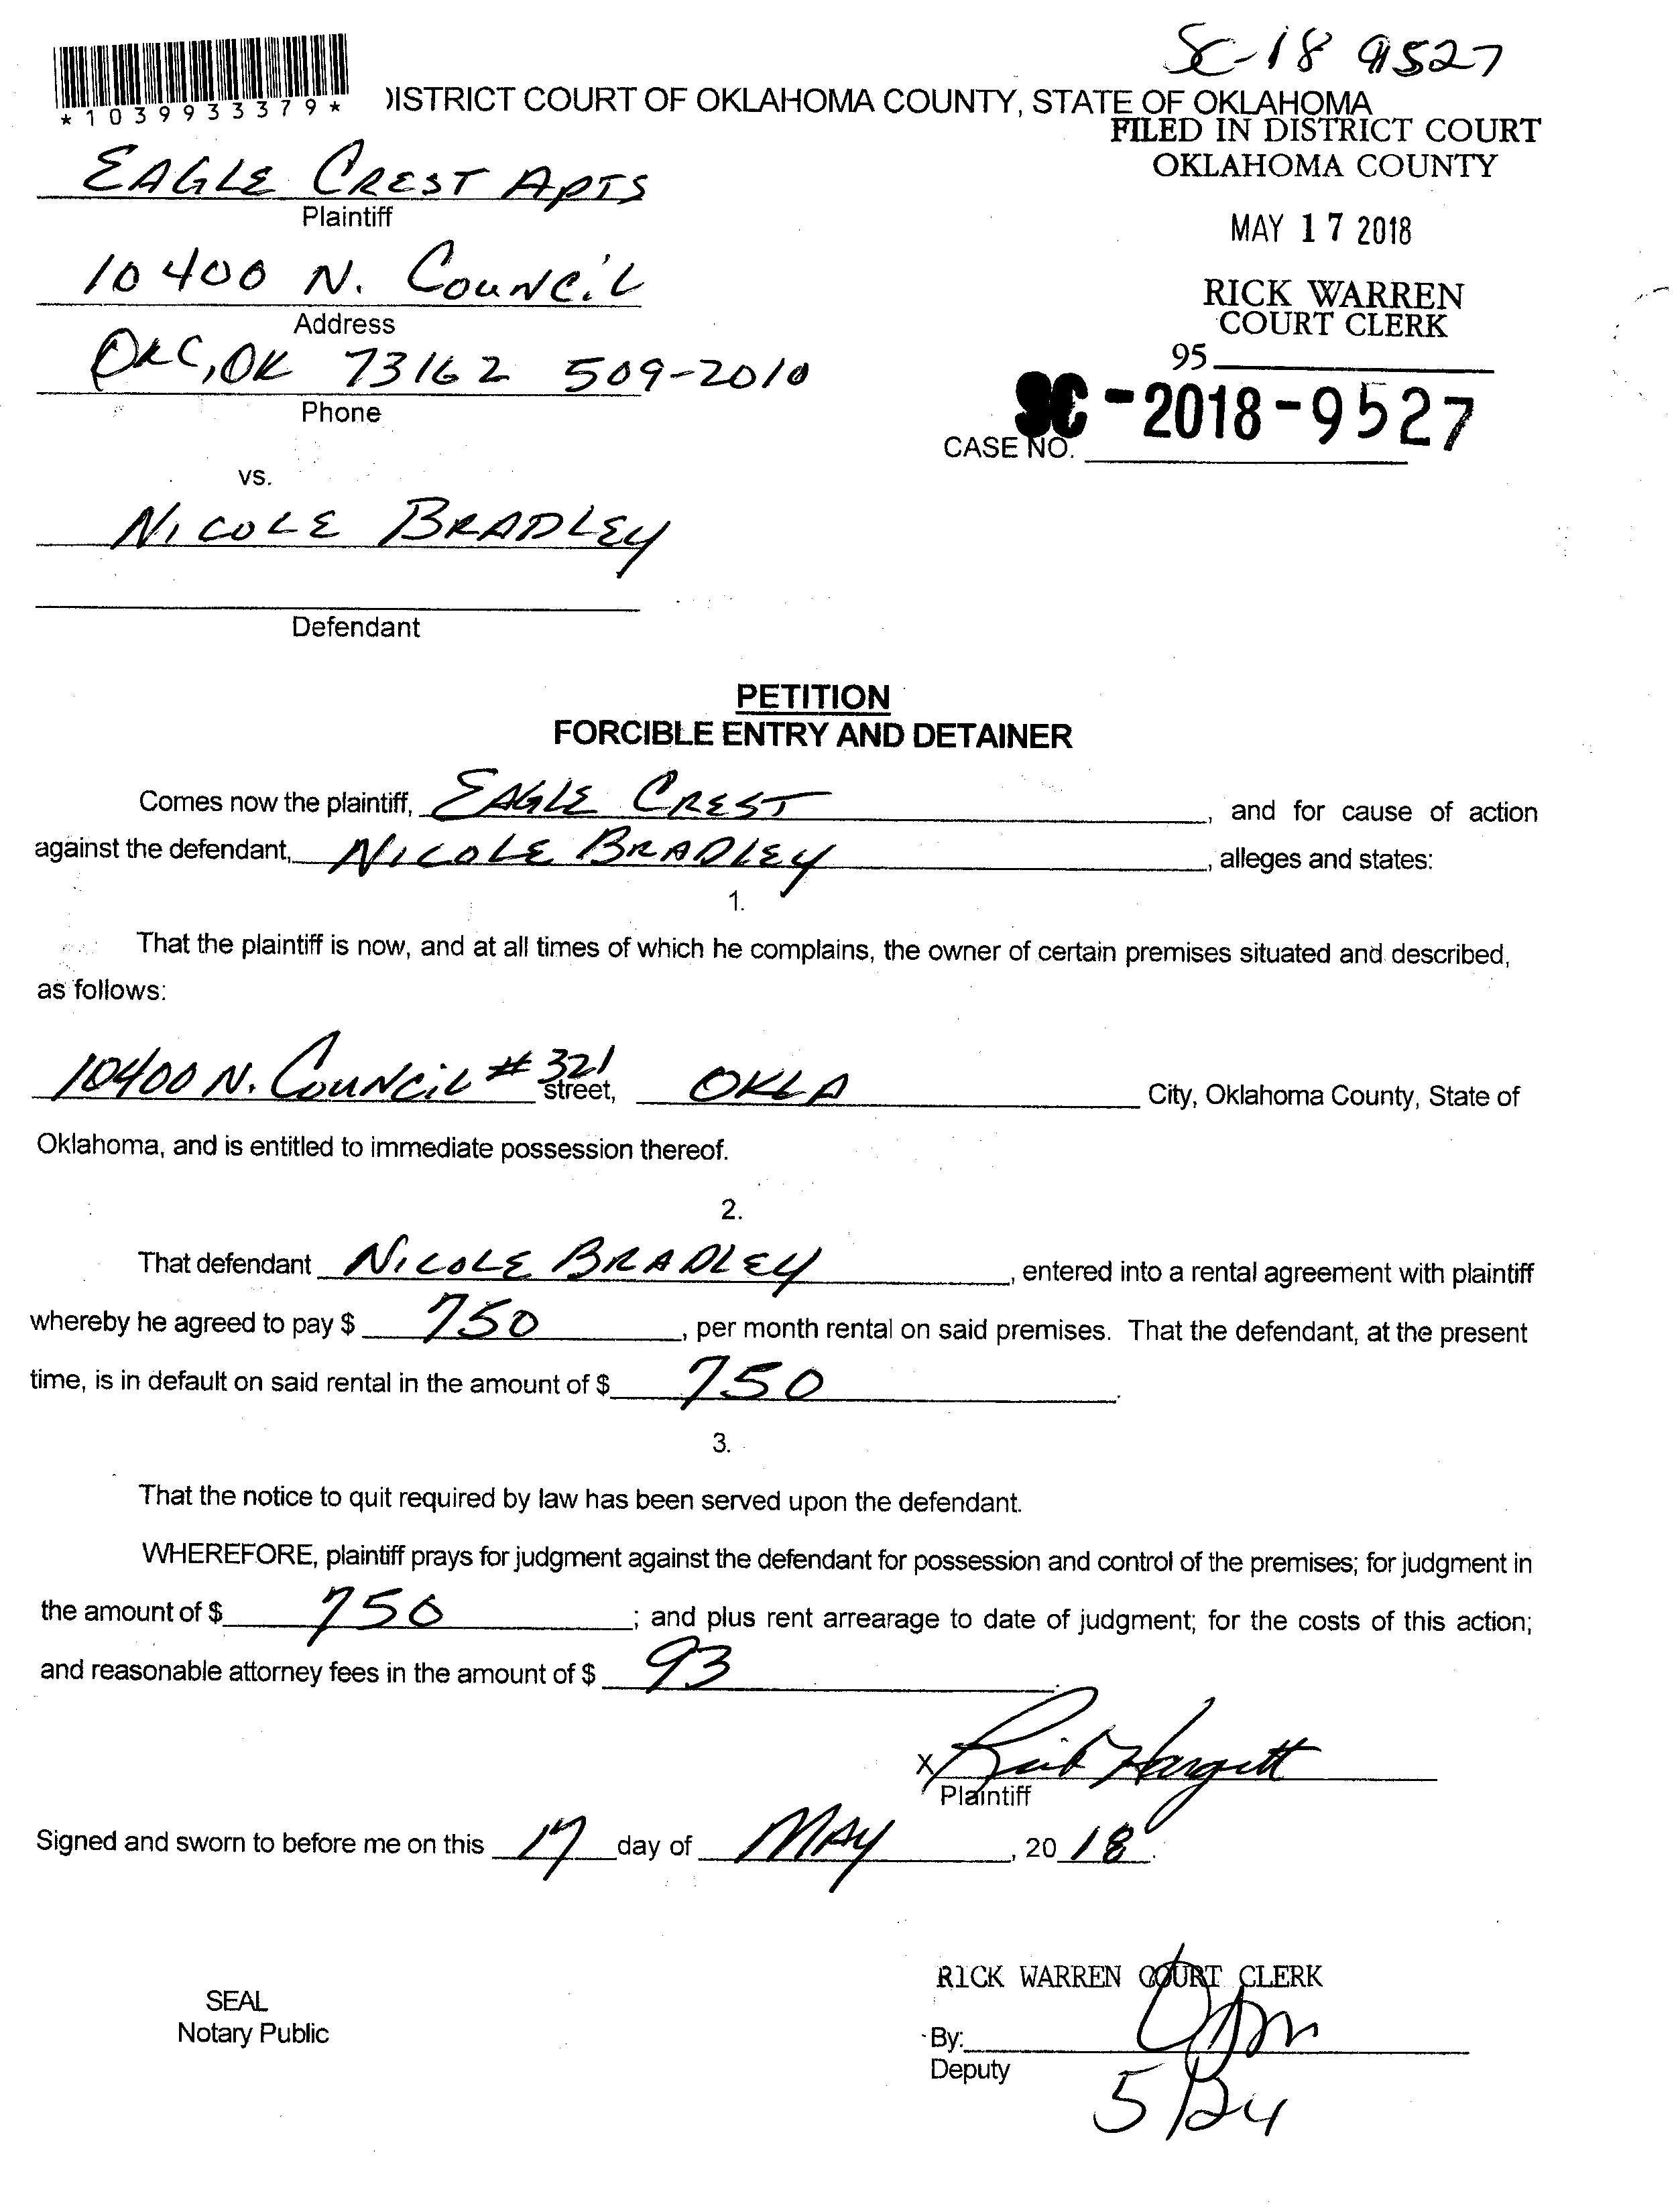 SC-18 9527
*1039933379*
DISTRICT COURT OF OKLAHOMA COUNTY, STATE OF OKLAHOMA
FILED IN DISTRICT COURT
OKLAHOMA COUNTY
EAGLE CREST APTS
Plaintiff
MAY 17 2018
10400 N. COUNCIL
Address
RICK WARREN
COURT CLERK
OKC, OK 73162 509-2010
Phone
95
SC-2018-9527
CASE NO.
vs.
NICOLE BRADLEY
Defendant
PETITION
FORCIBLE ENTRY AND DETAINER
Comes now the plaintiff, EAGLE CREST, and for cause of action
against the defendant, NICOLE BRADLEY, alleges and states:
1.
That the plaintiff is now, and at all times of which he complains, the owner of certain premises situated and described,
as follows:
10400 N. COUNCIL # 321 street, OKLA City, Oklahoma County, State of
Oklahoma, and is entitled to immediate possession thereof.
2.
That defendant NICOLE BRADLEY, entered into a rental agreement with plaintiff
whereby he agreed to pay $ 750, per month rental on said premises. That the defendant, at the present
time, is in default on said rental in the amount of $ 750.
3.
That the notice to quit required by law has been served upon the defendant.
WHEREFORE, plaintiff prays for judgment against the defendant for possession and control of the premises; for judgment in
the amount of $ 750; and plus rent arrearage to date of judgment; for the costs of this action;
and reasonable attorney fees in the amount of $ 93.
X Hargett
Plaintiff
Signed and sworn to before me on this 17 day of MAY, 2018.
RICK WARREN COURT CLERK
SEAL
Notary Public
By:
Deputy